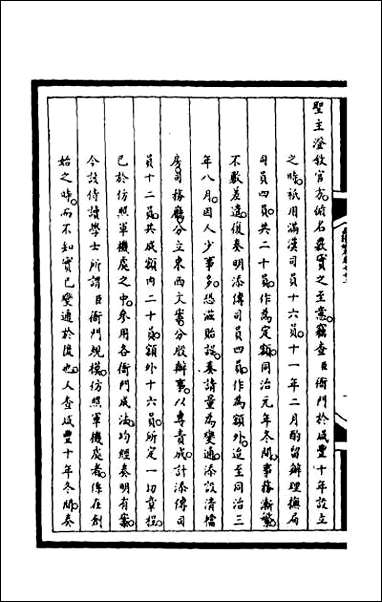 聖主澄敘官方循名覈實之至意竊查臣衙門於咸豐十年設立
之時祇用滿漢司員十六員十一年二月酌留辦理撫局
司員四員共二十員作為定額同治元年冬間事務漸繁
不敷差遣復奏明添傳司員四員作為額外迨至同治三
年八月因人少事多恐滋貽誤奏請量為變通添設清檔
房司務廳分立東西文案分股辦事以專責成計添傳司
員十二員共成額內二十員額外十六員所定一切章程
已於仿照軍機處之中參用各衙門成法均經奏明有案
今該侍讀學士所謂臣衙門規模仿照軍機處者係在創
始之時而不知實已變通於後也人查咸豐十年冬間奏